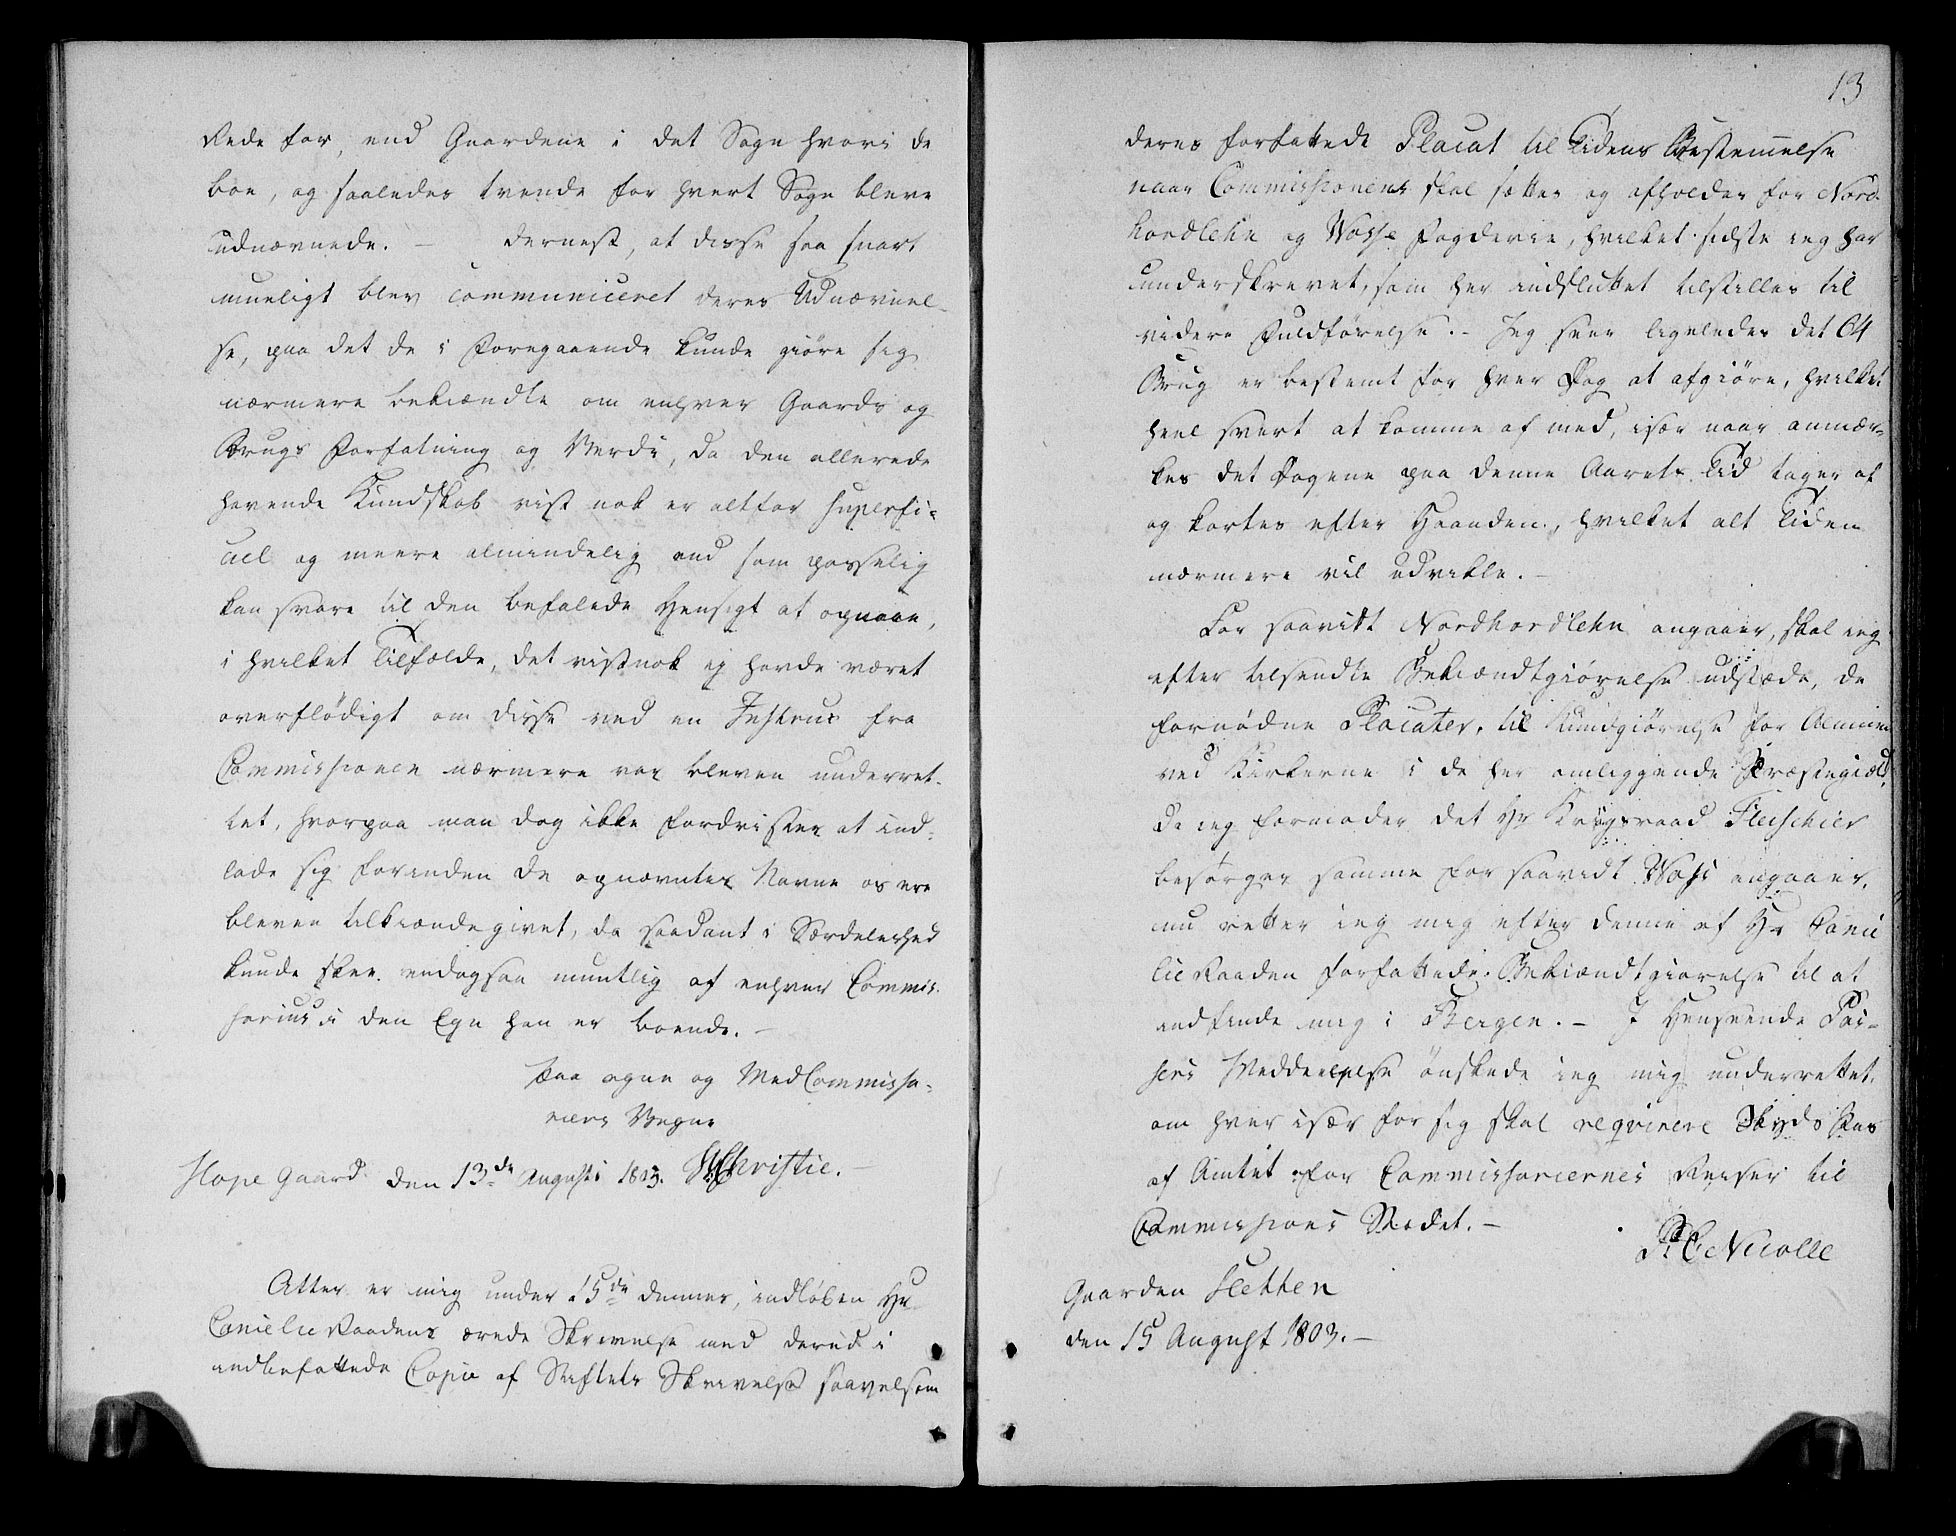 Rede for, end Gaardene i det Sogn hvori de
boe, og saaledes tvende for hvert Sogn bleve
udnævnede. — dernest, at disse saa snart
mueligt blev communiceret deres Udnævnel-
se, paa det de i Foregaaende kunde giøre sig
nærmere bekiændte om enhver Gaards og
Brugs Forfatning og Verdi, da den allerede
havende Kundskab vist nok er altfor superfi-
ciel og meere almindelig end som passelig
kan svare til den befalede Hensigt at opnaae,
i hvilket Tilfælde, det vistnok ej havde været
overflødigt om disse ved en Instrux fra
Commissionen nærmere var bleven underret-
tet, hvorpaa man dog ikke fordrister at ind-
lade sig forinden de opnævntes Navne os ere
bleven tilkiændegivet, da saadant i Særdeleshed
kunde skee endogsaa mundtlig af enhver Commis-
sarius i den Egn han er boende. —
Paa egne og MedCommissa-
riers Vegne
Hope Gaard den 13de Augusti 1803. Christie. —
Atter er mig under 15de dennes, indløben Hr
Cancelie Raadens ærede Skrivelse med derud i
indbefattede Copie af Stiftets Skrivelse saavelsom
13
deres forfattede Placat til Tidens Bestemelse
naar Commissionens skal sættes og afholdes for Nord-
hordlehn og Vosse Fogderie, hvilket sidste ieg har
underskrevet, som her indsluttet tilstilles til
videre Fuldførelse. - Jeg seer ligeledes det 64
Brug er bestemt for hver Dag at afgiøre, hvilket
heel svert at komme af med, især naar anmær-
kes det Dagene paa denne Aarets Tid tager af
og kortes efter Haanden, hvilket alt Tiden
nærmere vil udvikle. —
For saavitt Nordhordlehn angaaer, skal ieg
efter tilsendte Bekiændtgiørelse udstæde, de
fornødne Placater, til Kundgiørelse for Almuen
ved Kirkerne i de her omliggende Præstegield,
da ieg formoder det Hr Krigsraad Fleischer
besørger samme for saavidt Voss angaaer,
nu retter ieg mig efter denne af Hr Cance
lie Raaden forfattede Bekiændtgiørelse til at
indfinde mig i Bergen. — I Henseende Pai-
sens Meddeelelse ønskede ieg mig underrettet,
om hver især for sig skal reqvirere Skyds Pas
af Amtet for Commissariernes Reiser til
Commissions Stædet. —
Nicolle
Gaarden Sletten
den 15 August 1803. —